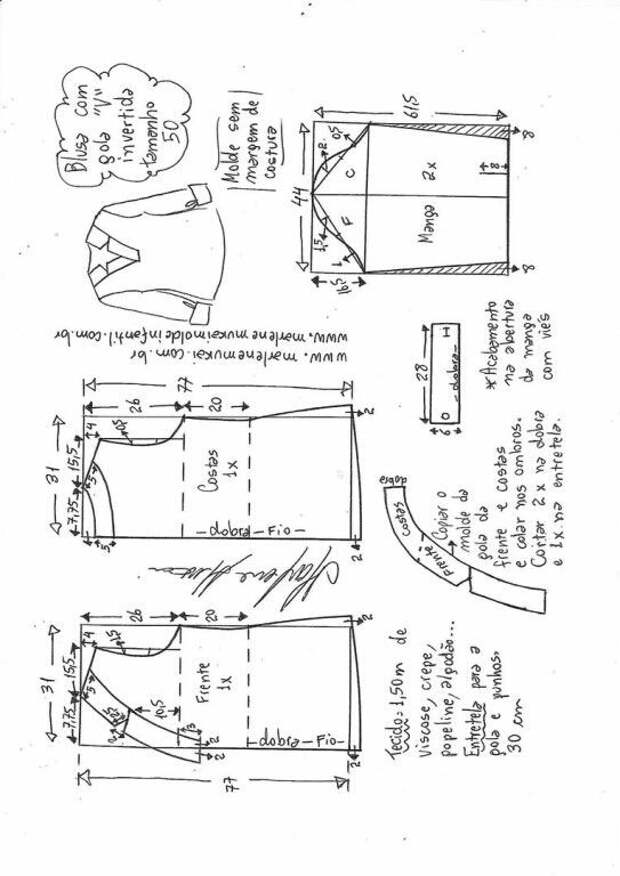 Blusa com
gola "V"
invertida
tamanho
50
Molde sem
margem de
costura
www.marlenemukai.com.br
www.marlenemukaimoldeinfantil.com.br
44
61,5
16,5
1,5
1
2
0,5
F
C
Manga
2x
8
8
8
28
6
dobra
*Acabamento
na abertura
da manga
com viés
31
7,75
15,5
4
26
20
77
5
5
0,5
Costas
1x
dobra - Fio
2
2
31
7,75
15,5
4
26
20
77
5
1,5
10,5
3
2
2
Frente
1x
dobra - Fio
2
2
77
dobra
costas
Frente
Copiar o
molde da
gola da
frente e costas
e colar nos ombros.
Cortar 2x na dobra
e 1x na entretela.
Tecido = 1,50m de
viscose, crepe,
popeline, algodão...
Entretela para a
gola e punhos.
30 cm